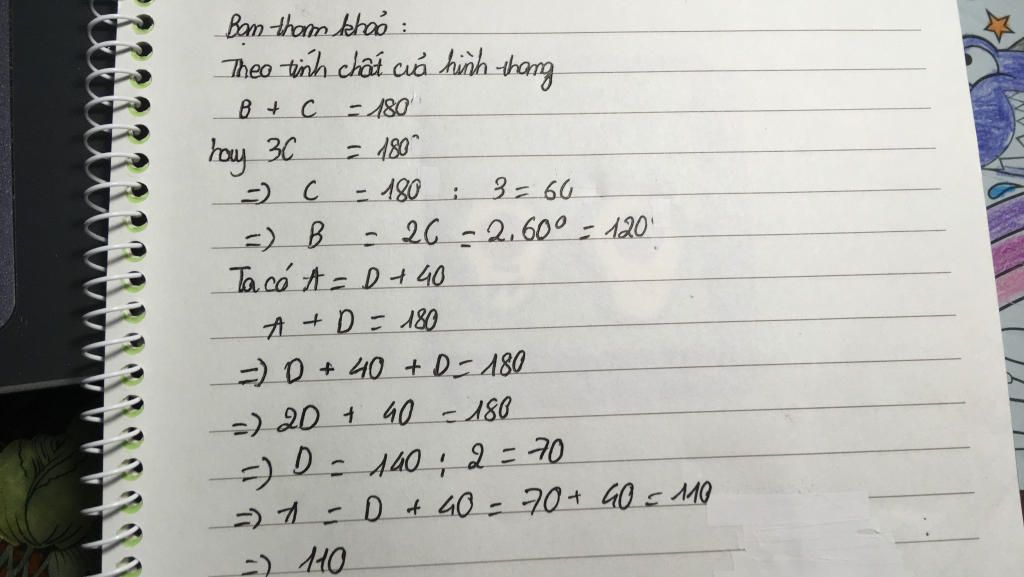 Bạn tham khảo :
Theo tính chất của hình thang
B + C = 180°
hay 3C = 180°
=> C = 180 : 3 = 60
=> B = 2C = 2.60° = 120°
Ta có A = D + 40
A + D = 180
=> D + 40 + D = 180
=> 2D + 40 = 180
=> D = 140 : 2 = 70
=> A = D + 40 = 70 + 40 = 110
=> 110